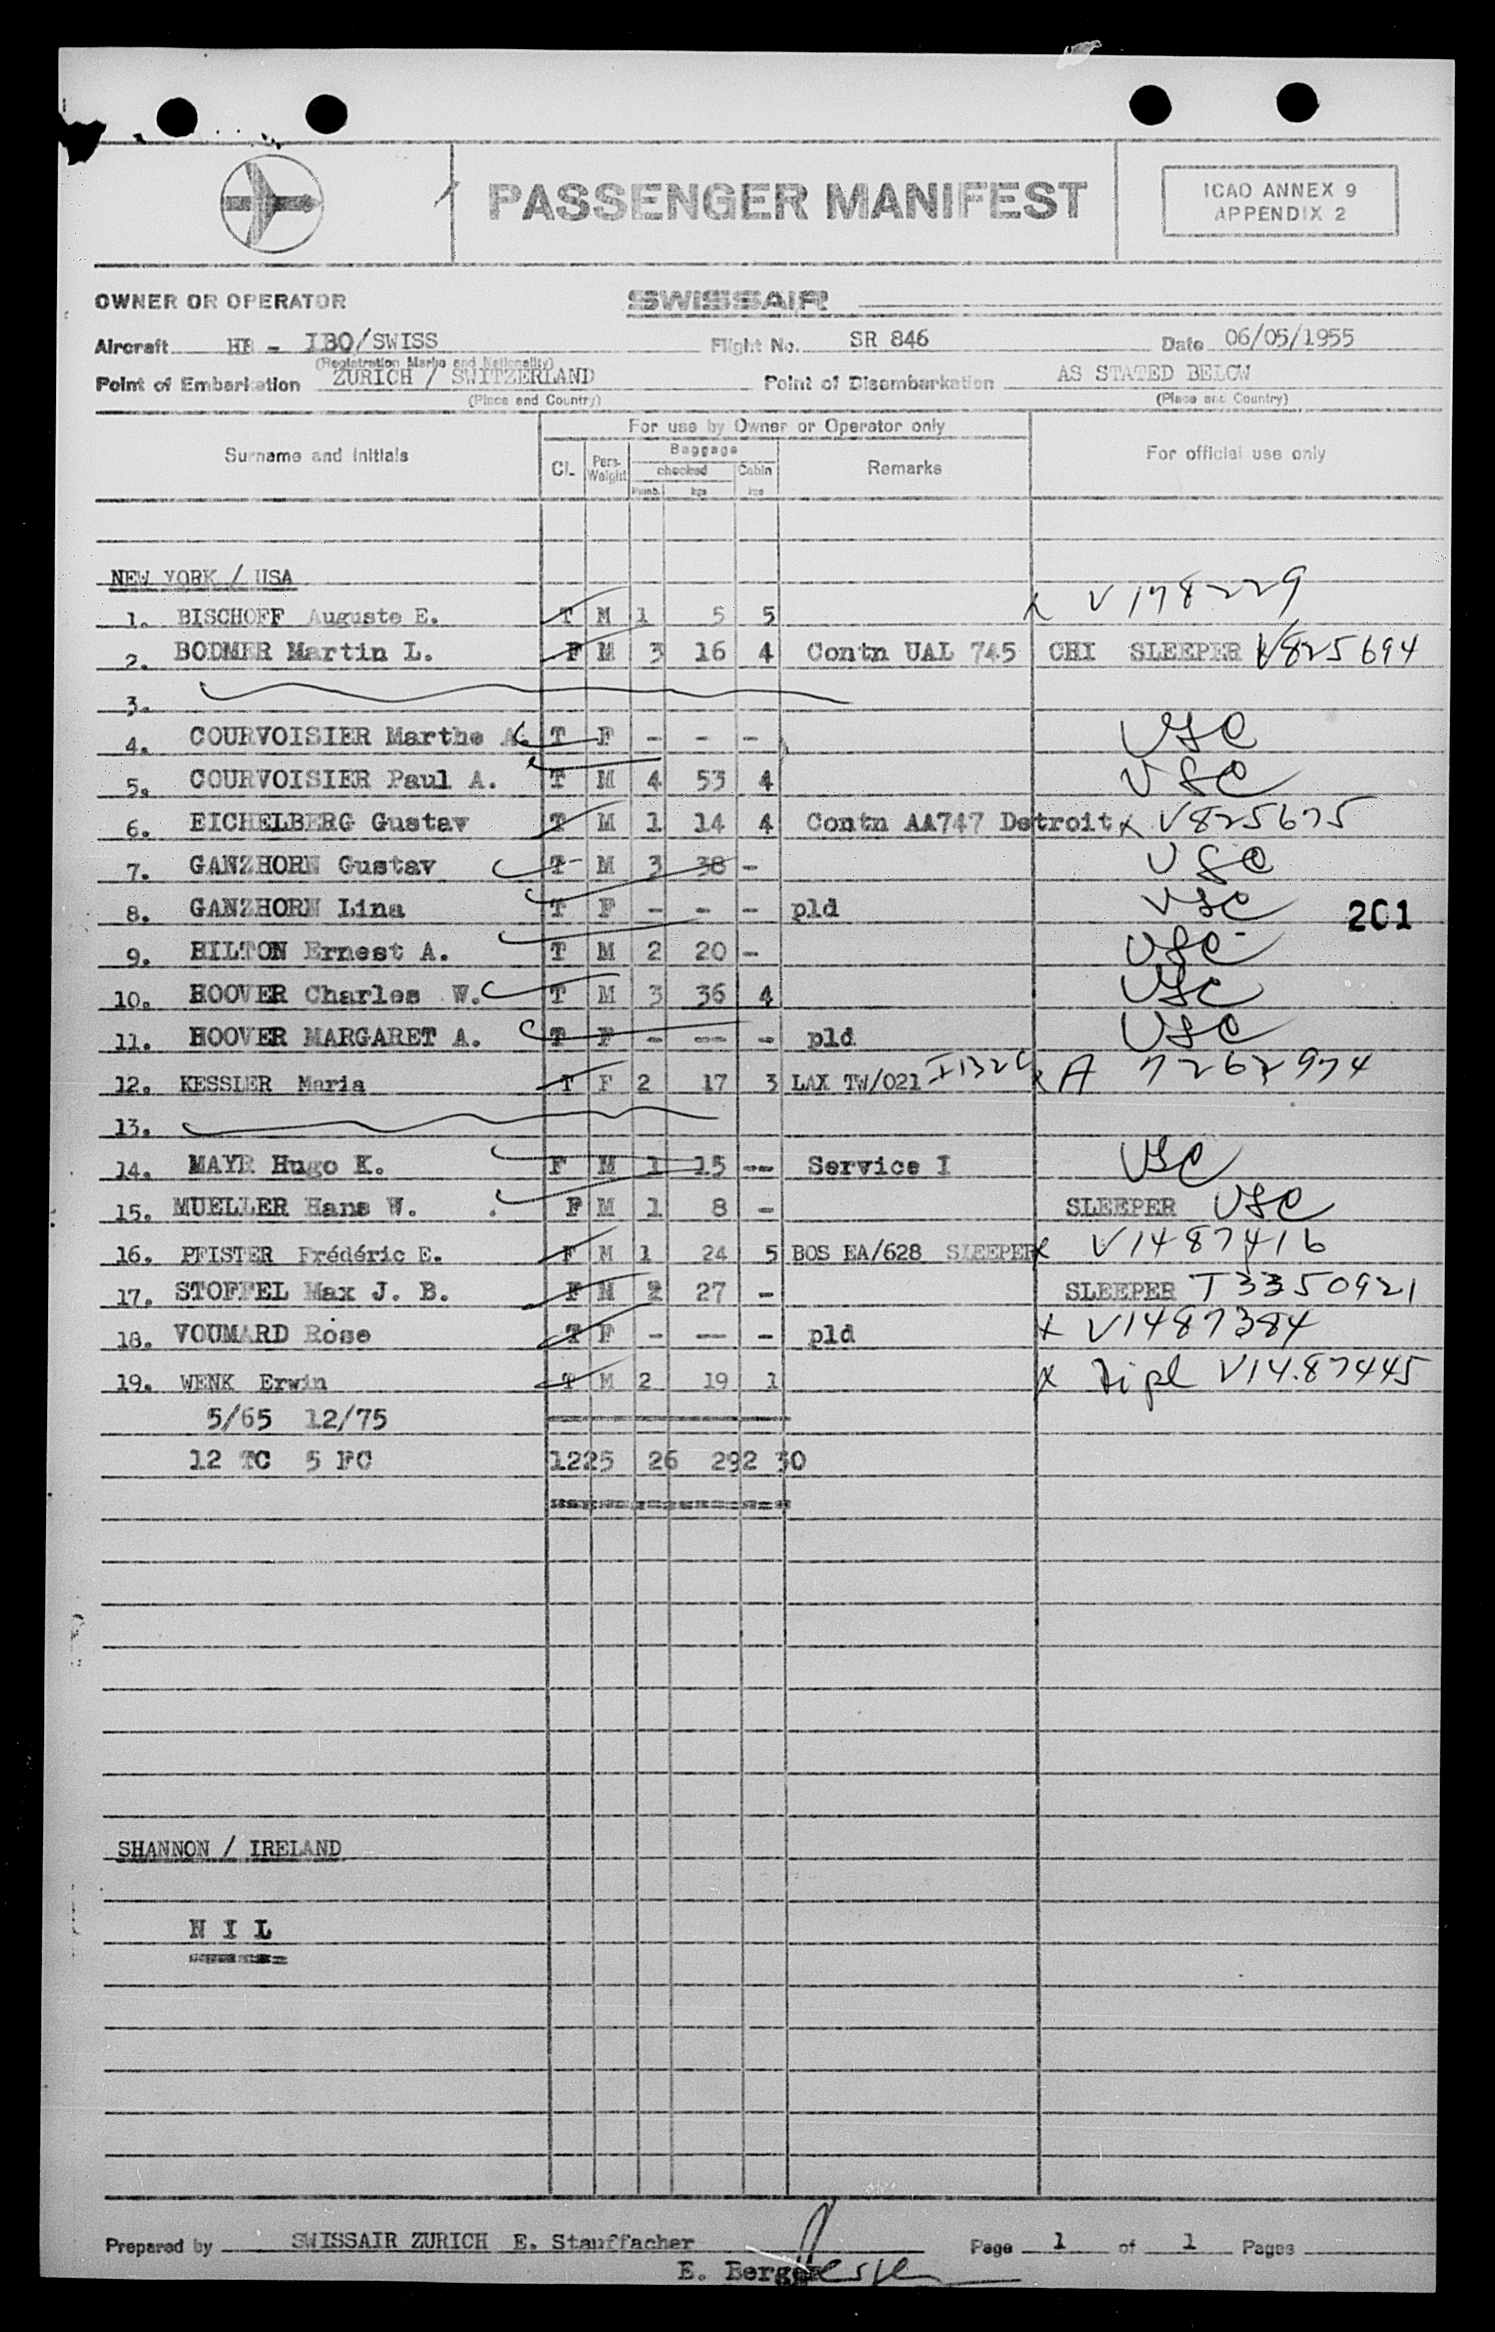 PASSENGER MANIFEST
ICAO ANNEX 9
APPENDIX 2
OWNER OR OPERATOR SWISSAIR
Aircraft HB - IBO/SWISS Flight No. SR 846 Date 06/05/1955
(Registration Marks and Nationality)
Point of Embarkation ZURICH / SWITZERLAND Point of Disembarkation AS STATED BELOW
(Place and Country) (Place and Country)
For use by Owner or Operator only
Surname and Initials Cl. Pers. Weight Baggage checked Numb. kgs Cabin kgs Remarks For official use only
NEW YORK / USA
1. BISCHOFF Auguste E. T M 1 5 5 x V178229
2. BODMER Martin L. F M 3 16 4 Contn UAL 745 CHI SLEEPER V825694
3.
4. COURVOISIER Marthe A. T F - - - USC
5. COURVOISIER Paul A. T M 4 53 4 USC
6. EICHELBERG Gustav T M 1 14 4 Contn AA747 Detroit x V825675
7. GANZHORN Gustav T M 3 38 - USC
8. GANZHORN Lina T F - - - pld USC 201
9. HILTON Ernest A. T M 2 20 - USC
10. HOOVER Charles W. T M 3 36 4 USC
11. HOOVER MARGARET A. T F - -- - pld USC
12. KESSLER Maria T F 2 17 3 LAX TW/021 x A 7262974
13.
14. MAYR Hugo K. F M 1 15 -- Service I USC
15. MUELLER Hans W. F M 1 8 - SLEEPER USC
16. PFISTER Frédéric E. F M 1 24 5 BOS EA/628 SLEEPER x V1487416
17. STOFFEL Max J. B. F M 2 27 - SLEEPER T3350921
18. VOUMARD Rose T F - -- - pld x V1487384
19. WENK Erwin T M 2 19 1 x Dipl V14.87445
5/65 12/75
12 TC 5 FC 1225 26 292 30
SHANNON / IRELAND
N I L
Prepared by SWISSAIR ZURICH E. Stauffacher Page 1 of 1 Pages
E. Berger